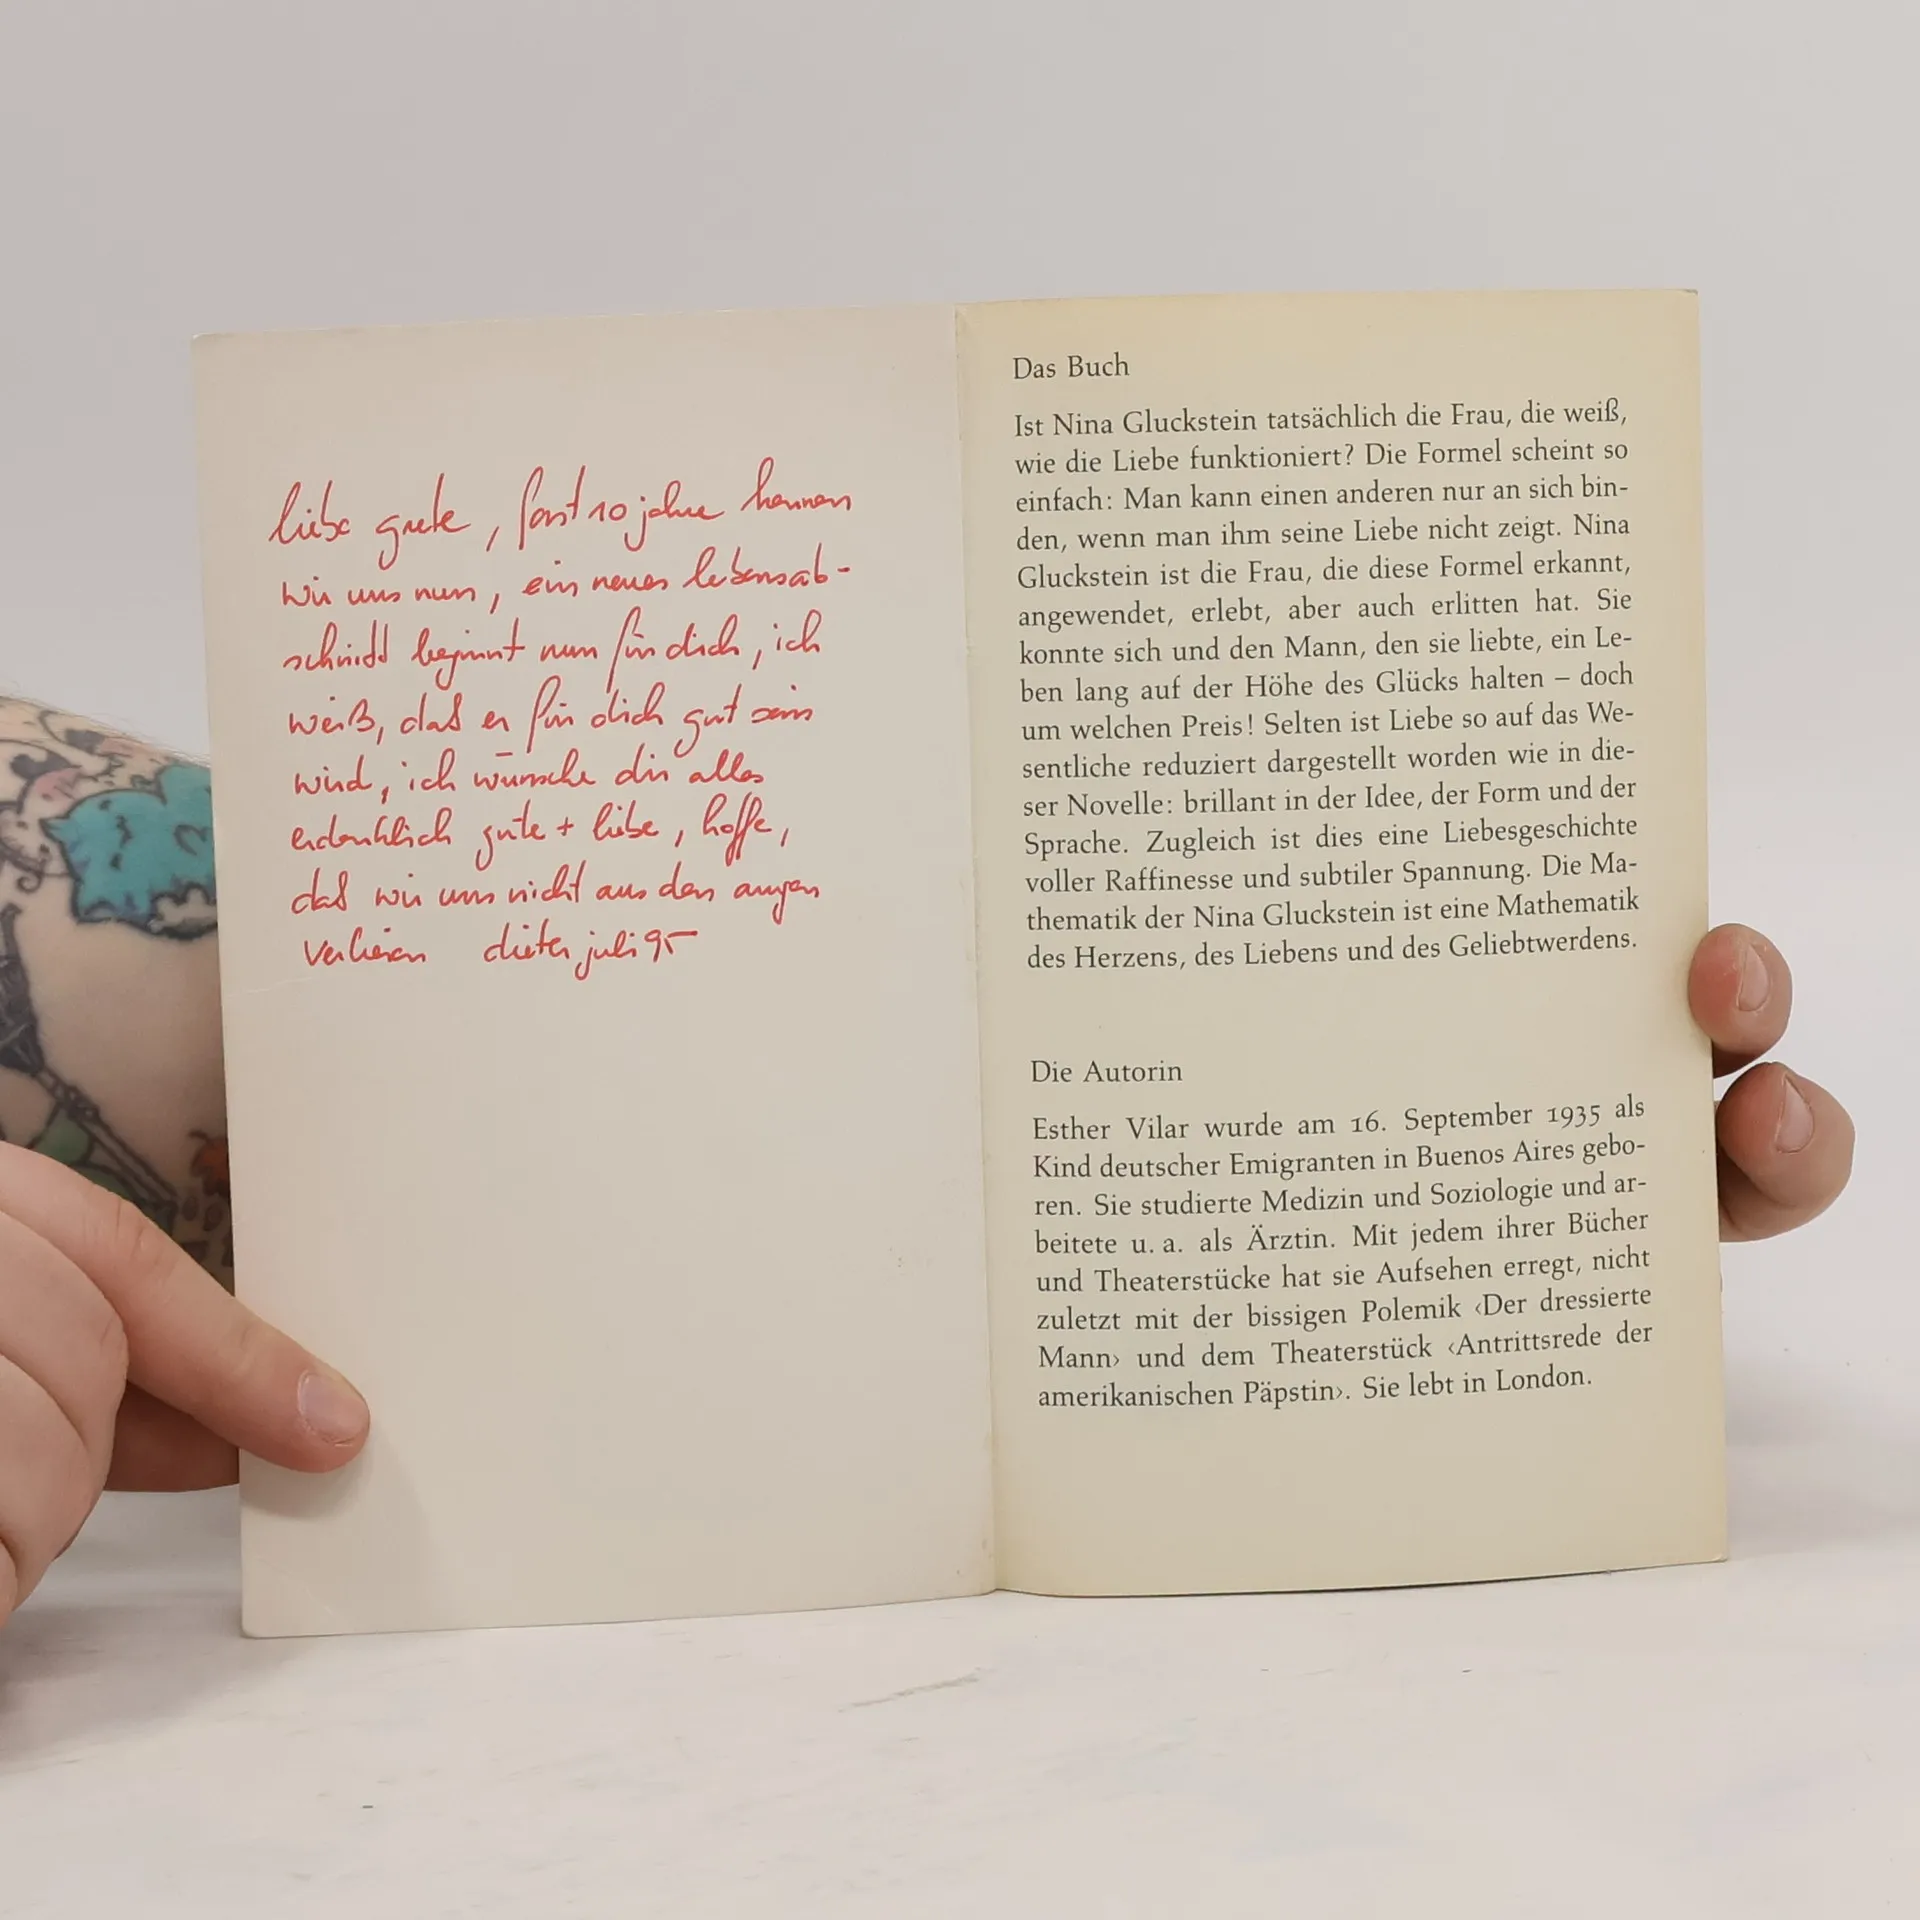 liebe grete, fast 10 jahre kennen
wir uns nun, ein neuer lebensab-
schnitt beginnt nun für dich, ich
weiß, daß er für dich gut sein
wird, ich wünsche dir alles
erdenklich gute + liebe, hoffe,
daß wir uns nicht aus den augen
verlieren dieter juli 95
Das Buch
Ist Nina Gluckstein tatsächlich die Frau, die weiß,
wie die Liebe funktioniert? Die Formel scheint so
einfach: Man kann einen anderen nur an sich bin-
den, wenn man ihm seine Liebe nicht zeigt. Nina
Gluckstein ist die Frau, die diese Formel erkannt,
angewendet, erlebt, aber auch erlitten hat. Sie
konnte sich und den Mann, den sie liebte, ein Le-
ben lang auf der Höhe des Glücks halten – doch
um welchen Preis! Selten ist Liebe so auf das We-
sentliche reduziert dargestellt worden wie in die-
ser Novelle: brillant in der Idee, der Form und der
Sprache. Zugleich ist dies eine Liebesgeschichte
voller Raffinesse und subtiler Spannung. Die Ma-
thematik der Nina Gluckstein ist eine Mathematik
des Herzens, des Liebens und des Geliebtwerdens.
Die Autorin
Esther Vilar wurde am 16. September 1935 als
Kind deutscher Emigranten in Buenos Aires gebo-
ren. Sie studierte Medizin und Soziologie und ar-
beitete u. a. als Ärztin. Mit jedem ihrer Bücher
und Theaterstücke hat sie Aufsehen erregt, nicht
zuletzt mit der bissigen Polemik ‹Der dressierte
Mann› und dem Theaterstück ‹Antrittsrede der
amerikanischen Päpstin›. Sie lebt in London.